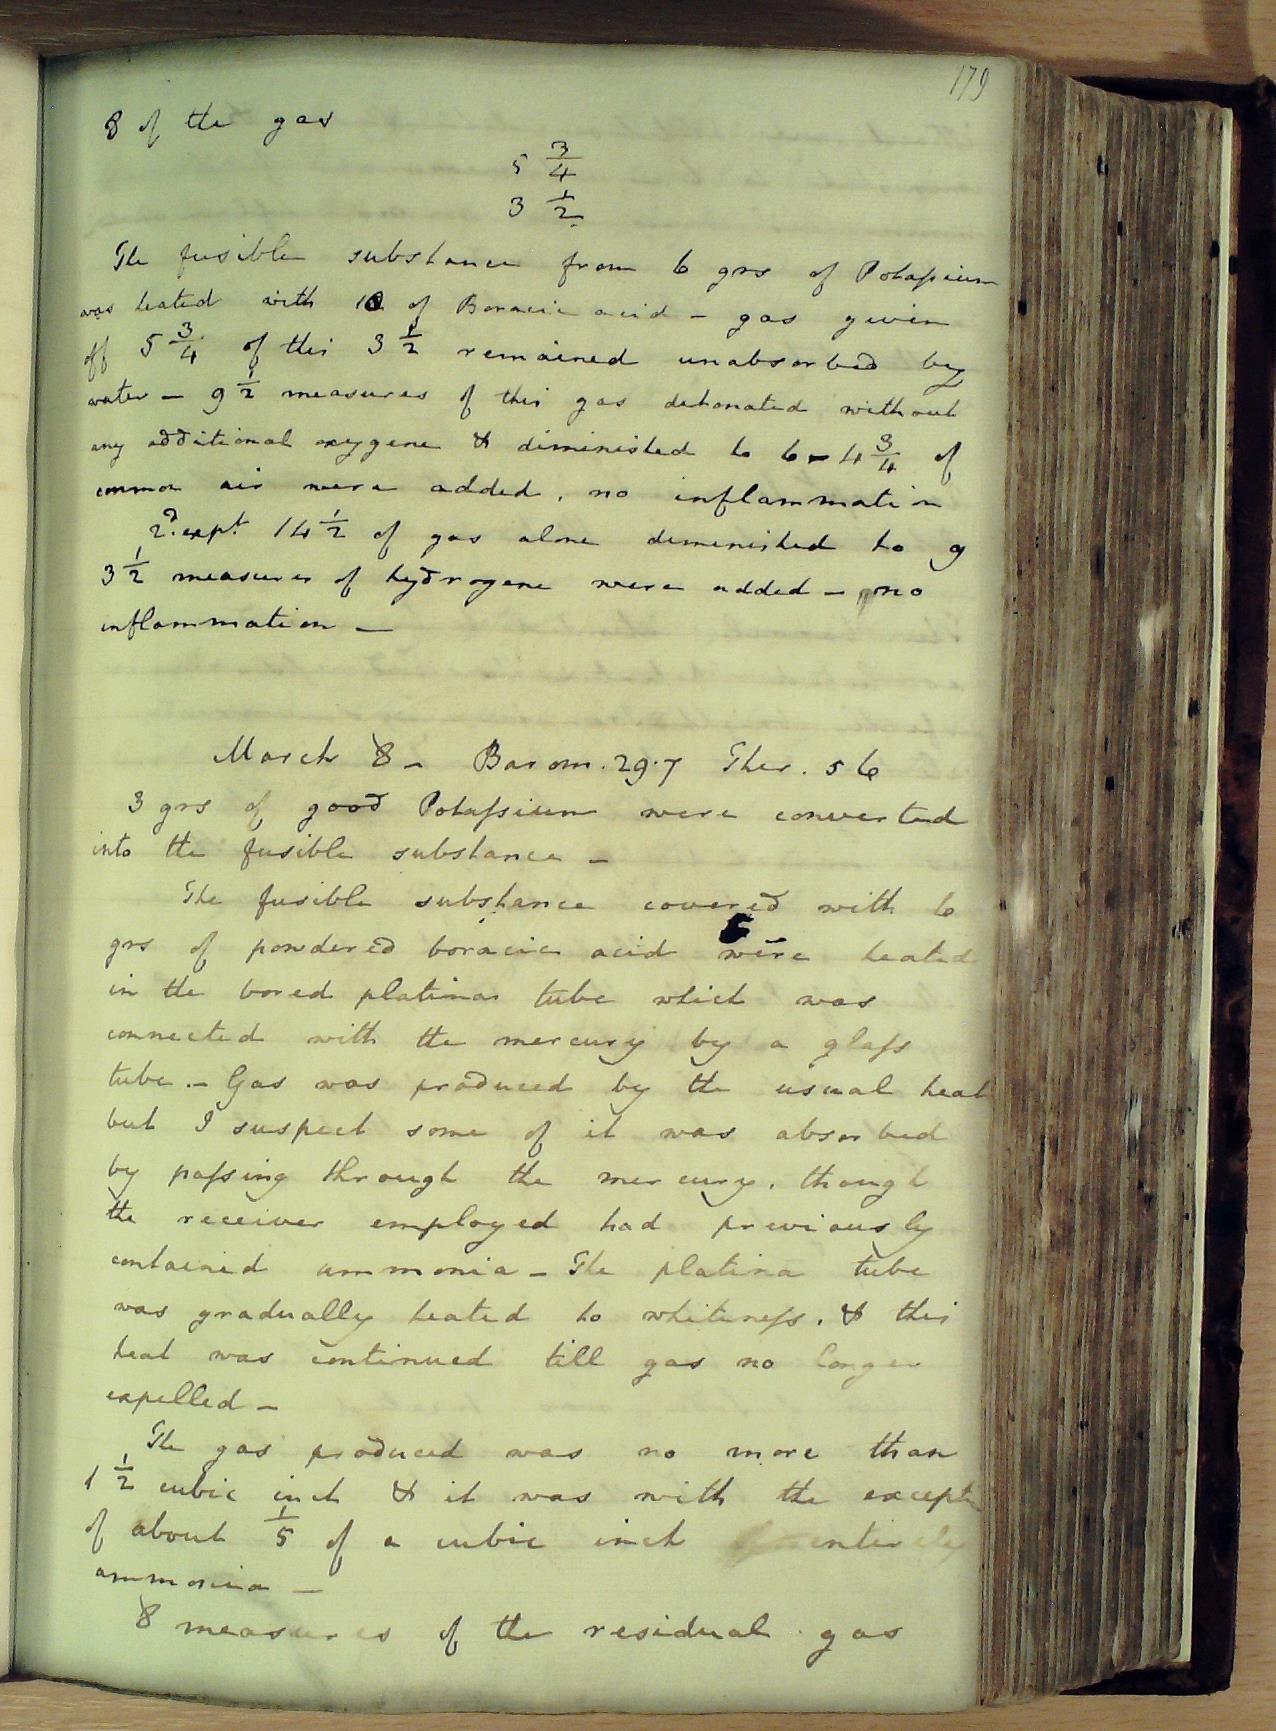 179
8 of the gas
5 3/4
3 1/2
The fusible substance from 6 grs of Potaſsium
was heated with 10 of Boracic acid – gas given
off 5 3/4 of this 3 1/2 remained unabsorbed by
water – 9 1/2 measures of this gas detonated without
any additional oxygene & diminished to 6 – 4 3/4 of
common air were added, no inflammation
2d. expt. 14 1/2 of gas alone diminished to 9
3 1/2 measures of hydrogene were added – no
inflammation –
March 8 – Barom. 29.7 Ther. 56
3 grs of good Potaſsium were converted
into the fusible substance –
The fusible substance covered with 6
grs of powdered boracic acid were heated
in the bored platina tube which was
connected with the mercury by a glaſs
tube. – Gas was produced by the usual heat
but I suspect some of it was absorbed
by paſsing through the mercury, though
the receiver employed had previously
contained ammonia – The platina tube
was gradually heated to whiteneſs, & this
heat was continued till gas no longer
expelled –
The gas produced was no more than
1 1/2 cubic inch & it was with the exceptn
of about 1/5 of a cubic inch entirely
ammonia –
8 measures of the residual gas